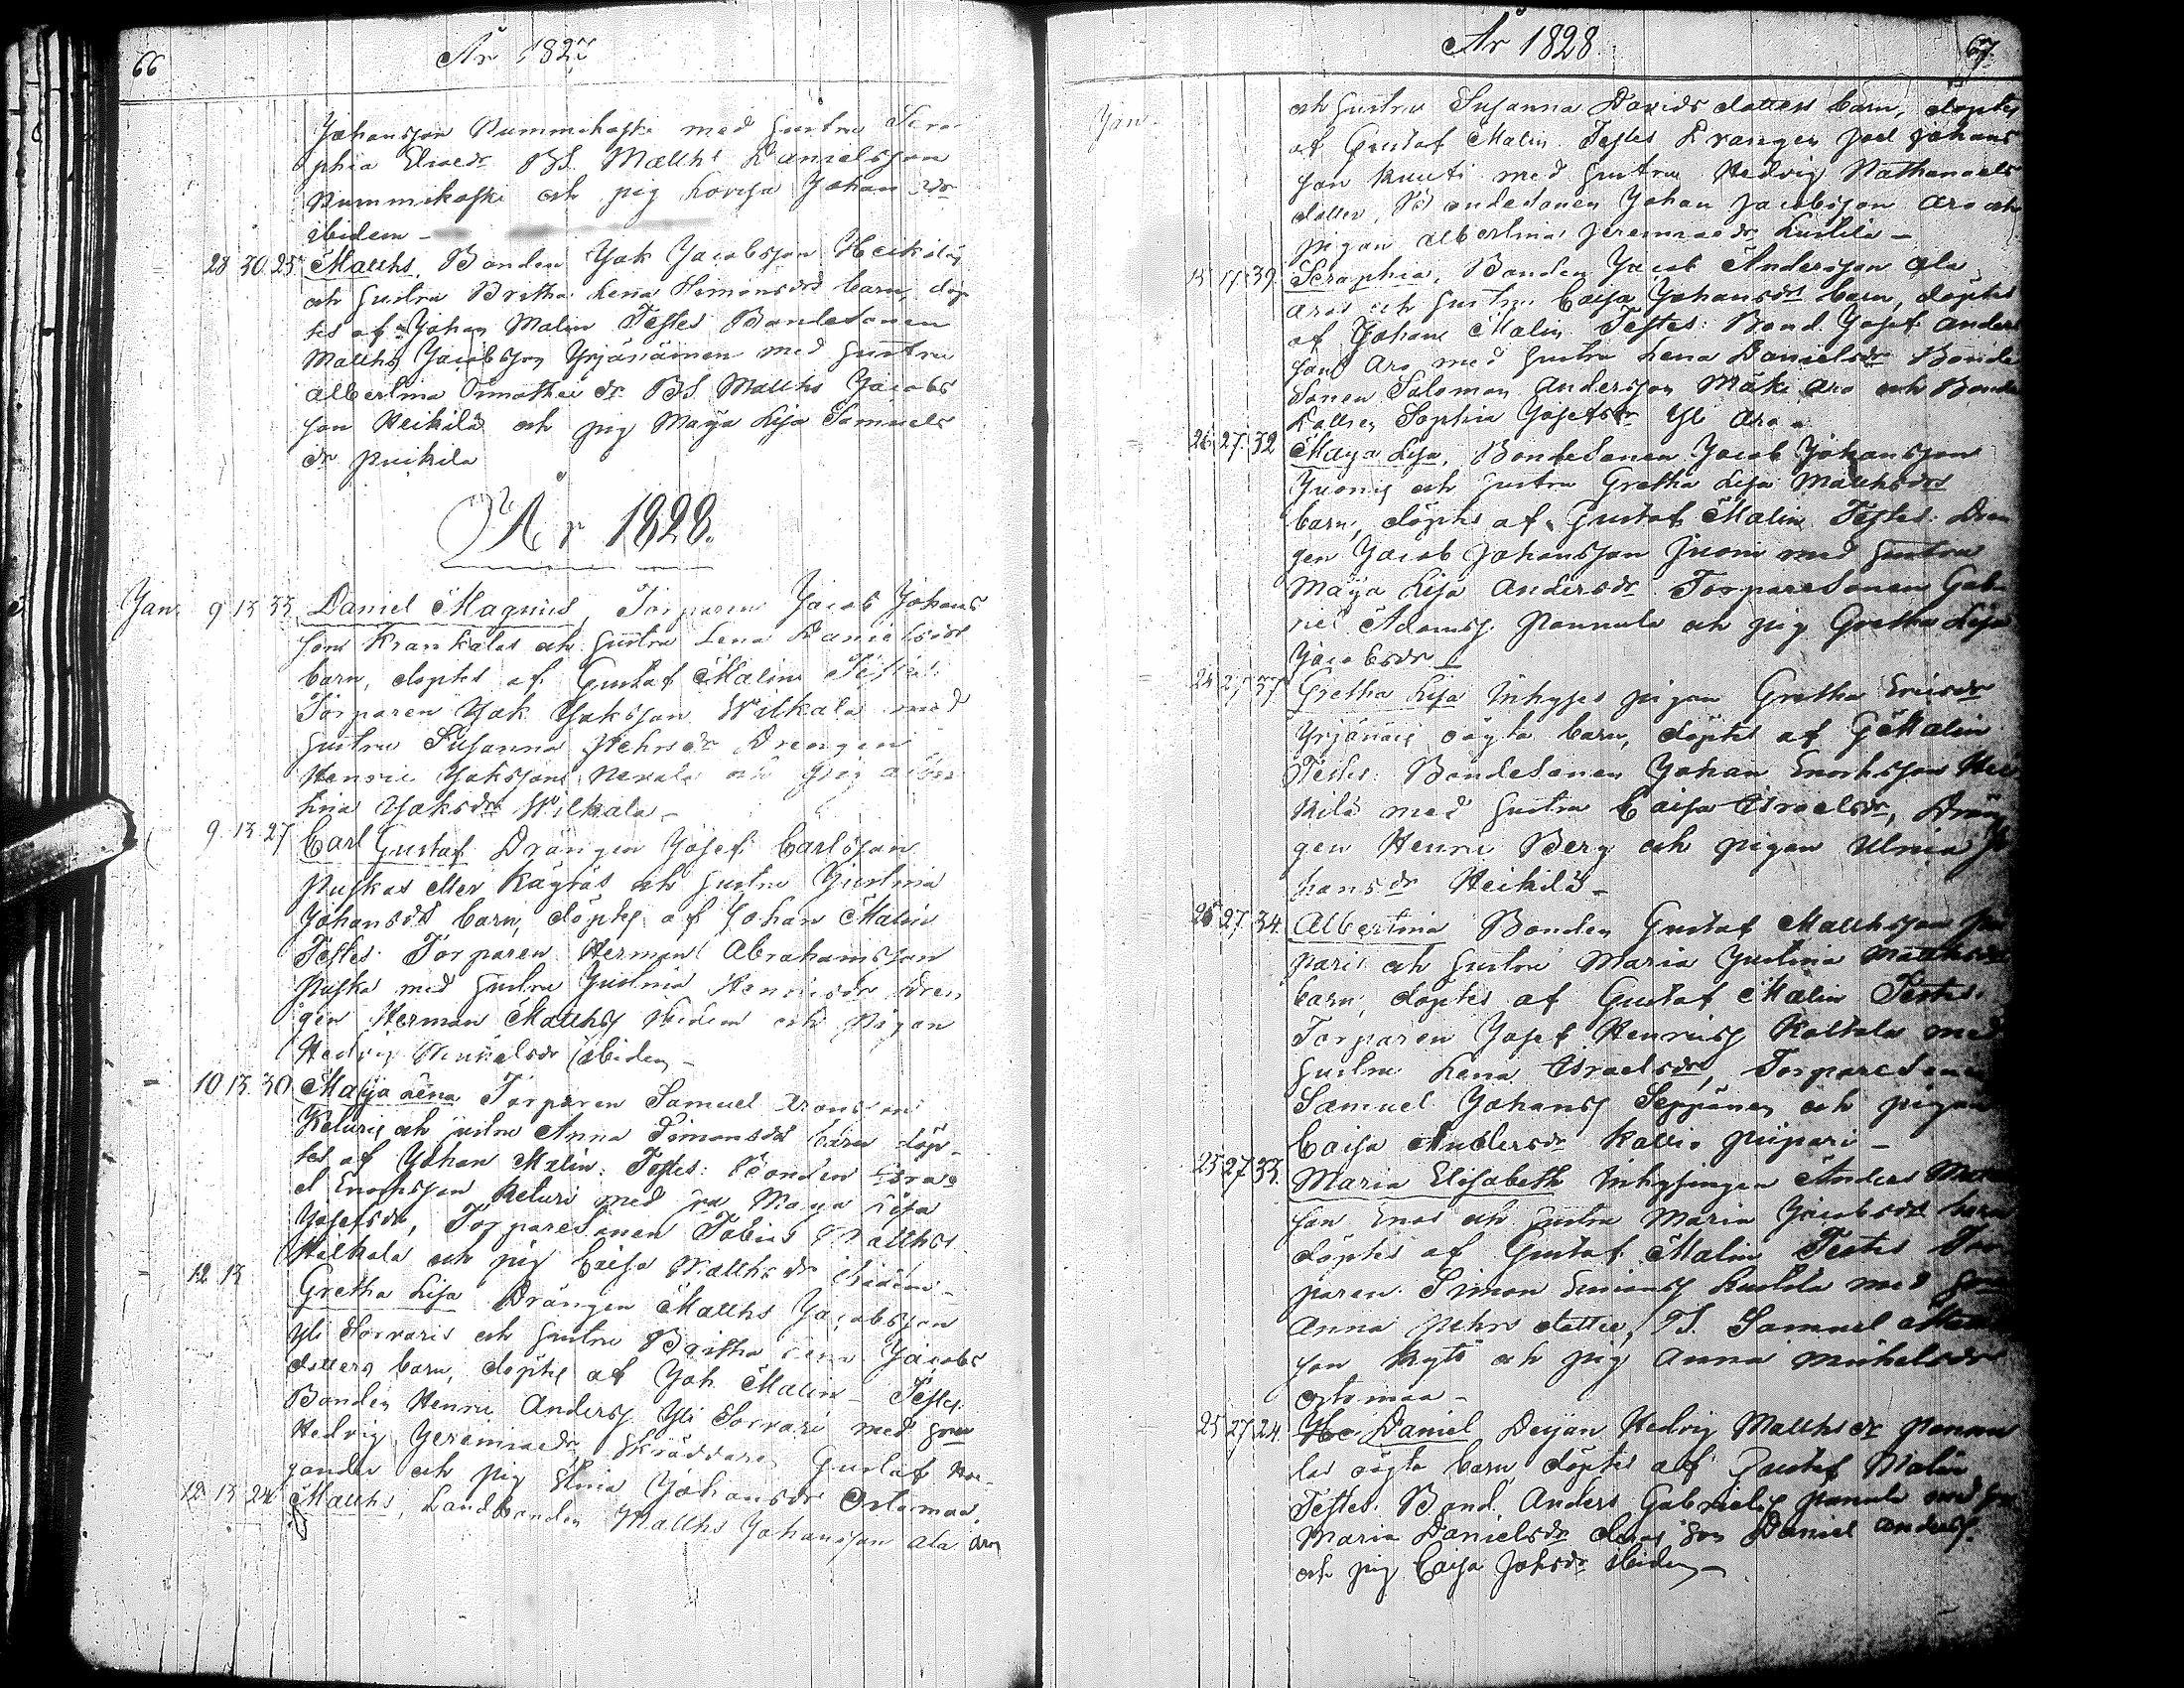 66
År 1827
Johansson Nummikoski med hustru Sera-
phia Eliaedr BS. Matths Danielsson
Nummikoski och pig Lovisa Johansdr
ibidem -
28 30 25 Matths, Bonden Jak Jacobsson Heikilas
och hustru Britha Lena Simonsdrs barn, döp
tes af Johan Malin Testes Bondesonen
Matths Jacobsson Yrjänäinen med hustru
Albertina Timotheidr BS. Matths Jacobs
son Heikilä och pig Maija Lisa Samuels
dr
År 1828.
Jan. 9 13 33 Daniel Magnus, Torparen Jacob Johans
sons Krankalas och hustru Lena Danielsdrs
barn, döptes af Gustaf Malin Testes:
Torparen Jak Jaksson Wilkala med
hustru Susanna Pehrsdr Drengen
Henric Jakssons och pig
Jaksdr Wilkala -
9 13 27 Carl Gustaf Drängen Josef Carlsson
eller och hustru Justina
Johansdrs barn, döptes af Johan Malin
Testes: Torparen Herman Abrahamsson
Puska med hustru Justina Henricsdr Drän
gen Herman Matths ibidem och Pigan
Hedvig ibidem -
10 13 30 Maija Lena Torparen Samuel
Keturis och hustru Anna Simonsdrs barn döp-
tes af Johan Malin: Testes: Bonden Isra
el Enochsson Keturi med hu Maija Lisa
Josefsdr, Torparesonen Tobias Matths
Wilkala och pig Caisa Matthsdr ibidem -
12 13 Gretha Lisa Drängen Matths Jacobsson
Yli Sorvaris och hustru Britha Lena Jacobs
dotters barn, döptes af Joh Malin - Testes
Bonden Henric Anderss Yli Sorvari med hu
Hedvig Jeremiaedr, Skräddare Gustaf
och pig Johansdr Ostamaa.
12 13 24 Matths, Landbonden Matths Johansson Ala Aro
År 1828.
67
Jan.
och hustru Susanna Davids dotters barn, döptes
af Gustaf Malin. Testes Drängen Joel Johans
son Knuuti med hustru Hedvig Nathanaels
dotter, Bondesonen Johan Jacobsson Aro och
pigan Albertina Jeremiaedr -
15 17 39 Seraphia, Bonden Jacob Andersson Ala
aros och hustru Caisa Johansdrs barn, döptes
af Johan Malin Testes: Bond Josef Anders
sons Aro med hustru Lena Danielsdr Bonde
Sonen Salomon Andersson Mäki Aro och Bonde
dottren Sophia Josefsdr Yli Aro -
26 27 32 Maija Lisa, Bondesonen Jacob Johansson
och hustru Gretha Lisa Matthsdrs
barn, döptes af Gustaf Malin Testes: Drän
gen Jacob Johansson med hustru
Maija Lisa Andersdr Torparesonen Gab-
riel Adamss Pannula och pig Gretha Lisa
Jacobsdr -
24 27 37 Gretha Lisa Inhyses pigan Gretha Ericsdr
Yrjänäis oägta barn, döptes af G Malin
Testes: Bondesonen Johan Enochsson Hei
kilä med hustru Caisa Israelsdr, Drän
gen Henric Berg och pigan Ulrica Jo
hansdr Heikilä -
25 27 34 Albertina Bonden Gustaf Matthsson
paris och hustru Maria Justina Matthsdrs
barn, döptes af Gustaf Malin Testes:
Torparen Josef Henricss Kallala med
hustru Lena Israelsdr, Torparesonen
Samuel Johanss Seppänen och pigan
Caisa Andersdr Kallio piipari -
25 27 33 Maria Elisabeth Inhysingen Anders
son och hustru Maria Jacobsdrs barn
döptes af Gustaf Malin Testes Tor
paren Simon Simonss Kustula med hu
Anna Pehrs dotter, TS. Samuel
son Kytö och pig Anna Michelsdr
Ostamaa -
25 27 24 Daniel Deijan Hedvig Matthsdr Pannu
las oägta barn, döptes af Gustaf Malin
Testes: Bond. Anders Gabrielss Pannula med hu
Maria Danielsdr deras son Daniel Anderss.
och pig Caisa Johsdr ibidem -